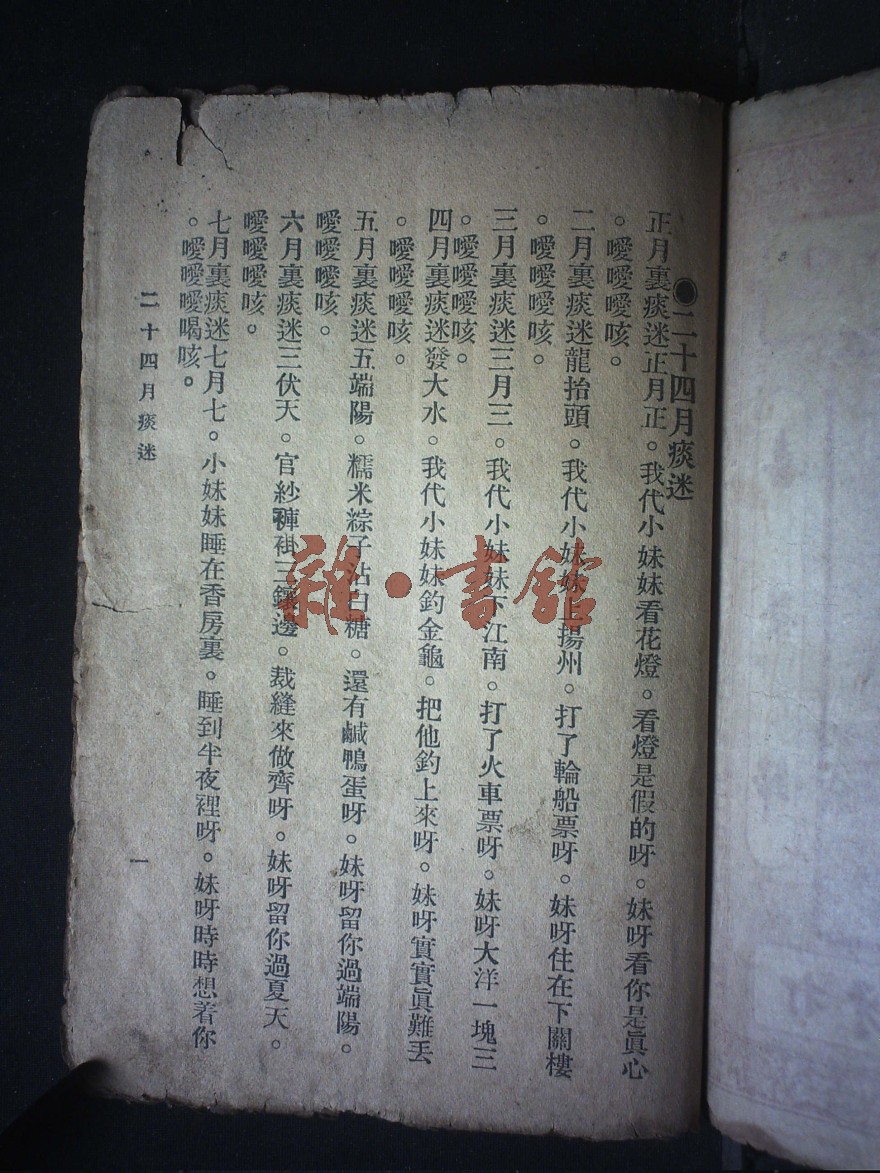 ●二十四月痰迷
正月裏痰迷正月正。我代小妹妹看花燈。看燈是假的呀。妹呀看你是眞心
。噯噯噯咳。
二月裏痰迷龍抬頭。我代小妹妹上揚州。打了輪船票呀。妹呀住在下關樓
。噯噯噯咳。
三月裏痰迷三月三。我代小妹妹下江南。打了火車票呀。妹呀大洋一塊三
。噯噯噯咳。
四月裏痰迷發大水。我代小妹妹釣金龜。把他釣上來呀。妹呀實實眞難丟
。噯噯噯咳。
五月裏痰迷五端陽。糯米綜子沾白糖。還有鹹鴨蛋呀。妹呀留你過端陽。
噯噯噯咳。
六月裏痰迷三伏天。官紗褲褂三鑲邊。裁縫來做齊呀。妹呀留你過夏天。
噯噯噯咳。
七月裏痰迷七月七。小妹妹睡在香房裏。睡到半夜裡呀。妹呀時時想着你
。噯噯噯喝咳。
二十四月痰迷
一
雜·書館